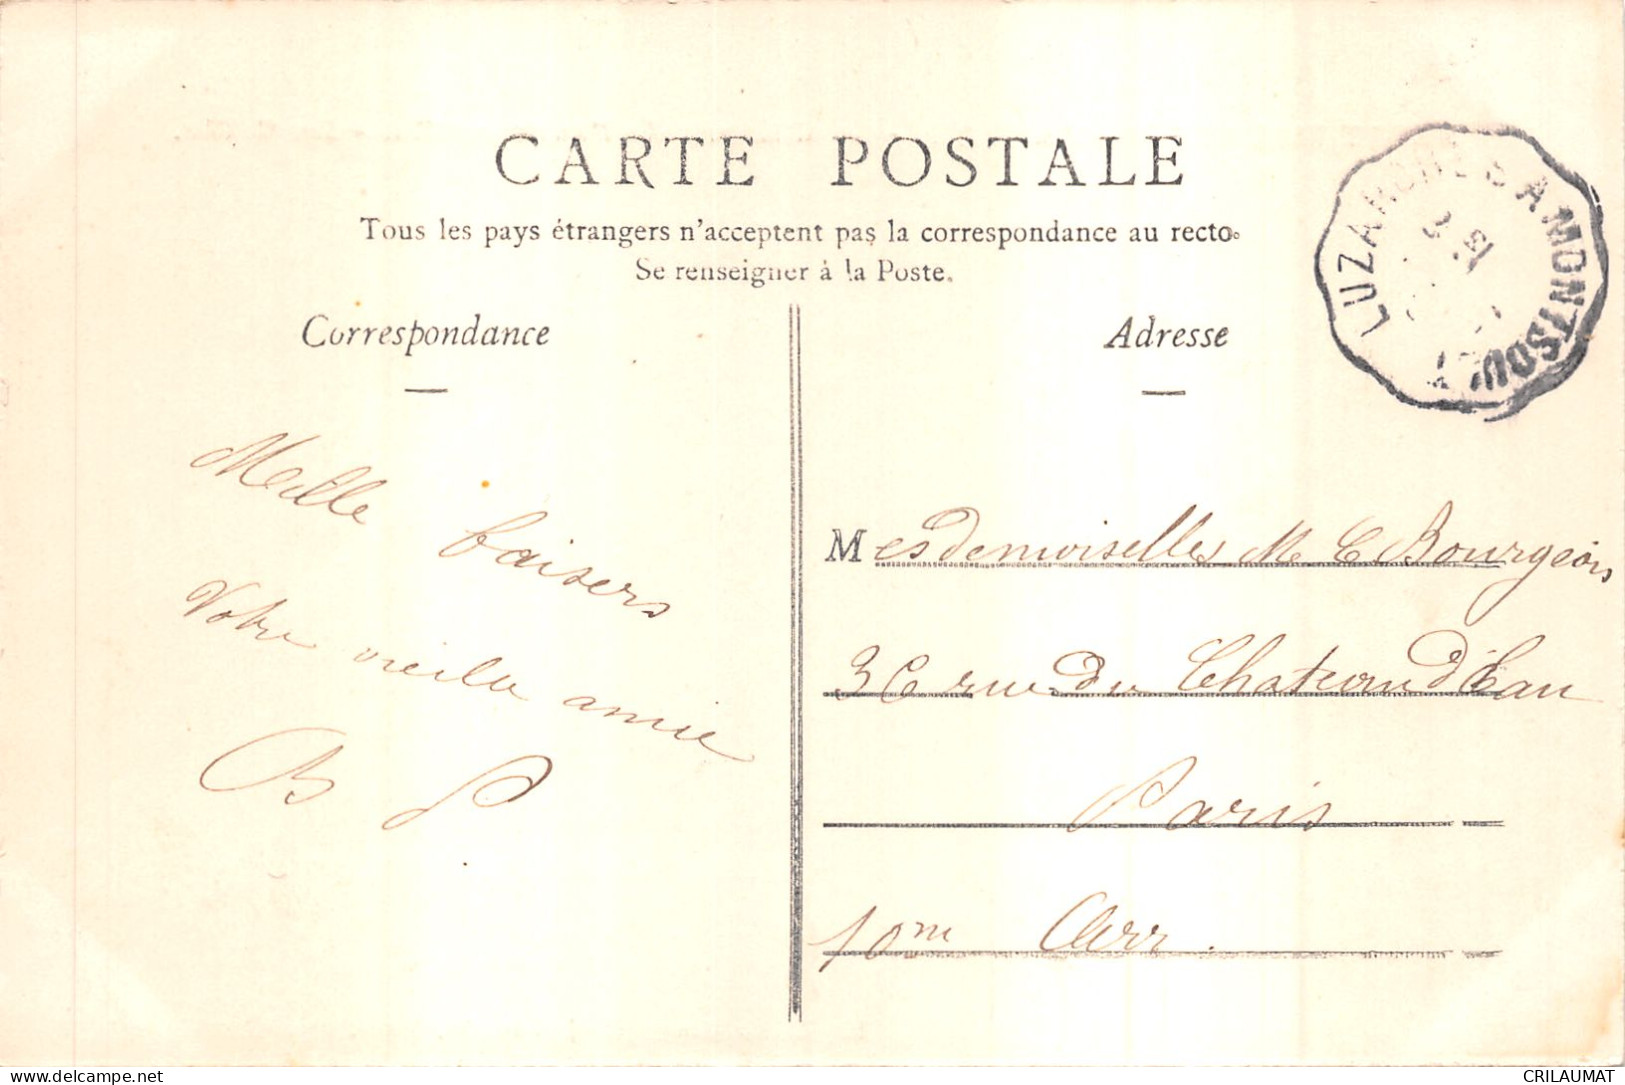 CARTE POSTALE
Tous les pays étrangers n'acceptent pas la correspondance au recto.
Se renseigner à la Poste.
Correspondance
Adresse
LUZARCHES A MONTSOULT
Mille baisers
Votre vieille amie
B P
Mesdemoiselles M C Bourgeois
36 rue du Chateau d'Eau
Paris
10m Arr.
www.delcampe.net
CRILAUMAT